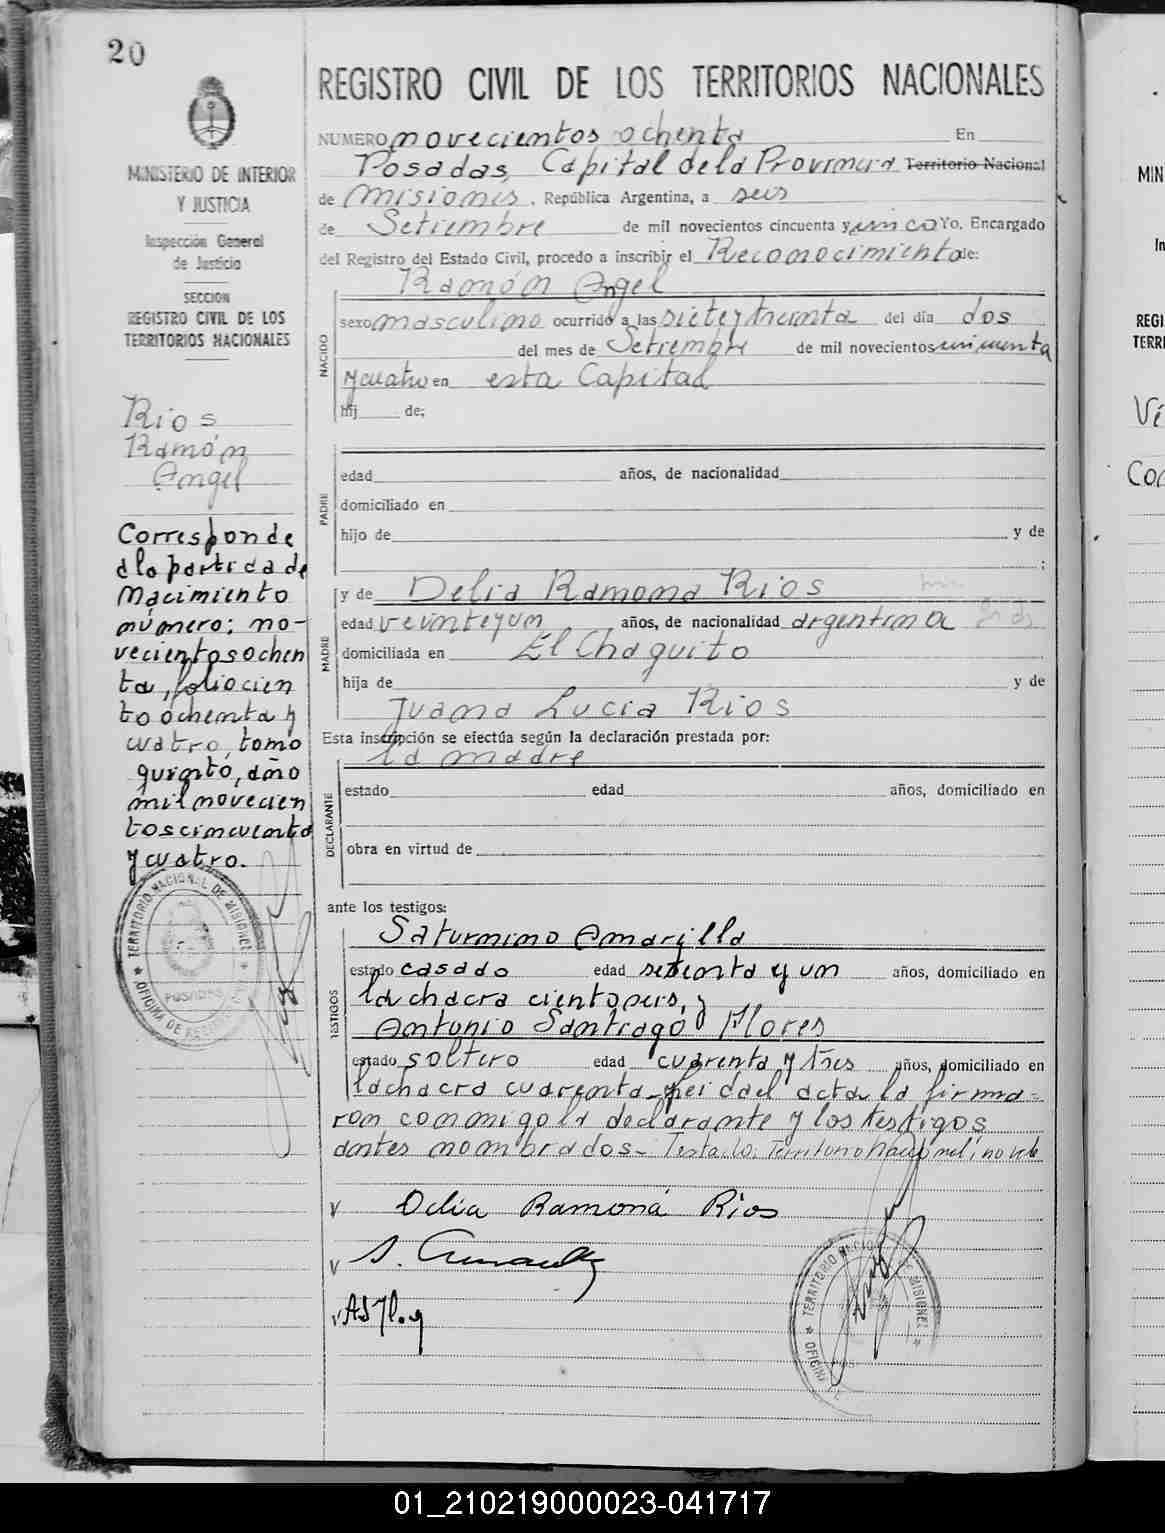 20
MINISTERIO DE INTERIOR
Y JUSTICIA
Inspección General
de Justicia
SECCION
REGISTRO CIVIL DE LOS
TERRITORIOS NACIONALES
Rios
Ramón
Angel
Corresponde
a la partida de
Nacimiento
número: no-
vecientos ochen
ta, folio cien
to ochenta y
cuatro, tomo
quinto, año
mil novecien
tos cincuenta
y cuatro.
TERRITORIO NACIONAL DE MISIONES
POSADAS
OFICINA DE
REGISTRO CIVIL DE LOS TERRITORIOS NACIONALES
NUMERO novecientos ochenta En
Posadas, Capital de la Provincia Territorio Nacional
de Misiones, República Argentina, a seis
de Setiembre de mil novecientos cincuenta y Yo, Encargado
del Registro del Estado Civil, procedo a inscribir el Reconocimiento de:
Ramón Angel
NACIDO
sexo masculino ocurrido a las siete y treinta del día dos
del mes de Setiembre de mil novecientos cincuenta
y cuatro en esta Capital
hij de;
PADRE
edad años, de nacionalidad
domiciliado en
hijo de y de
;
MADRE
y de Delia Ramona Rios
edad veintiyun años, de nacionalidad argentina
domiciliada en El Chaquito
hija de y de
Juana Lucia Rios
Esta inscripción se efectúa según la declaración prestada por:
la madre
DECLARANTE
estado edad años, domiciliado en
obra en virtud de
ante los testigos:
TESTIGOS
Saturnino Amarilla
estado casado edad setenta y un años, domiciliado en
la chacra ciento seis, y
Antonio Santiago Flores
estado soltero edad cuarenta y tres años, domiciliado en
la chacra cuarenta Leida el acta la firma-
ron conmigo la declarante y los testigos
antes nombrados- Testado: Territorio Nacional; no vale
Delia Ramona Rios
TERRITORIO NACIONAL DE MISIONES
OFICINA DE
MIN
REGI
TERRI
01_210219000023-041717